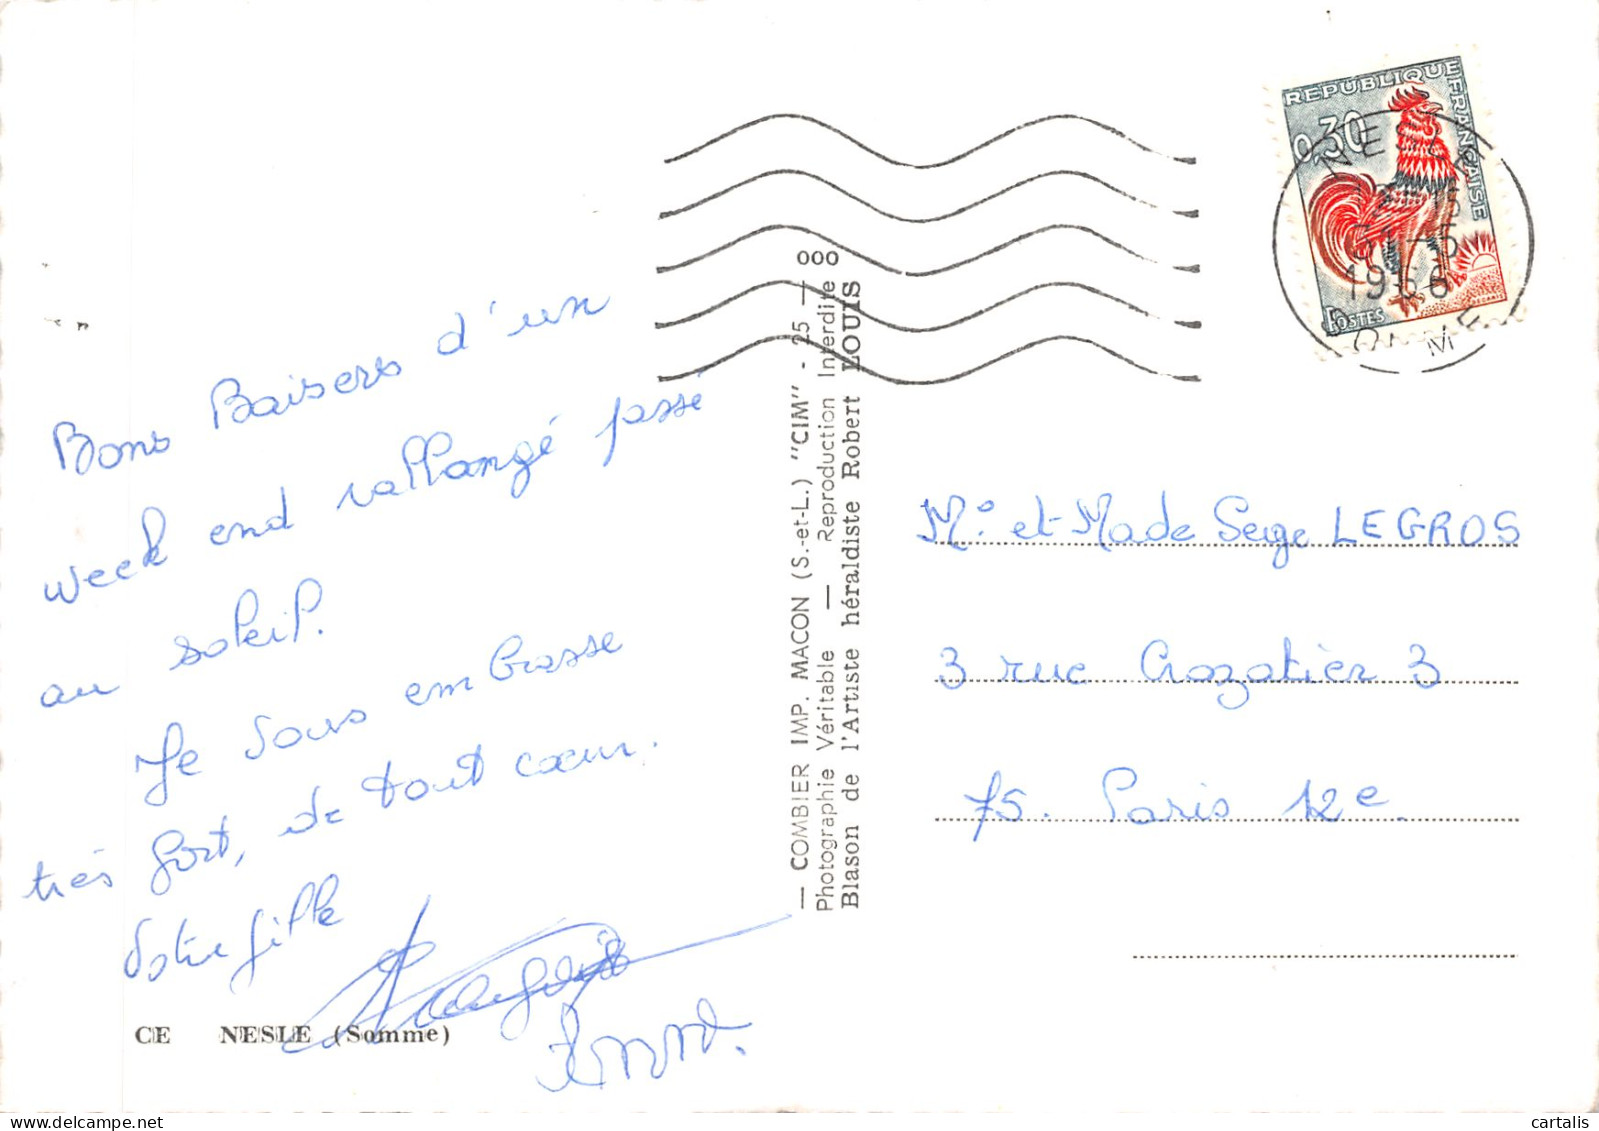 Bons Baisers d'un
week end rallongé passé
au soleil.
Je vous embrasse
très fort, de tout cœur.
Votre fille
CE NESLE (Somme)
— COMBIER IMP. MACON (S.-et-L.) "CIM" - 25 — 000
Photographie Véritable — Reproduction Interdite
Blason de l'Artiste héraldiste Robert LOUIS
REPUBLIQUE FRANÇAISE
0,30
POSTES
NESLE
15
-5
1966
SOMME
Mr et Made Serge LEGROS
3 rue Crozatier 3
75. Paris 12e.
cartalis